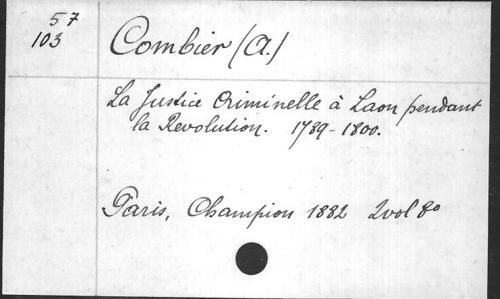 57
103
Combier (A.)
La Justice Criminelle à Laon pendant
la Revolution. 1789-1800.
Paris, Champion 1882 2 vol 8º